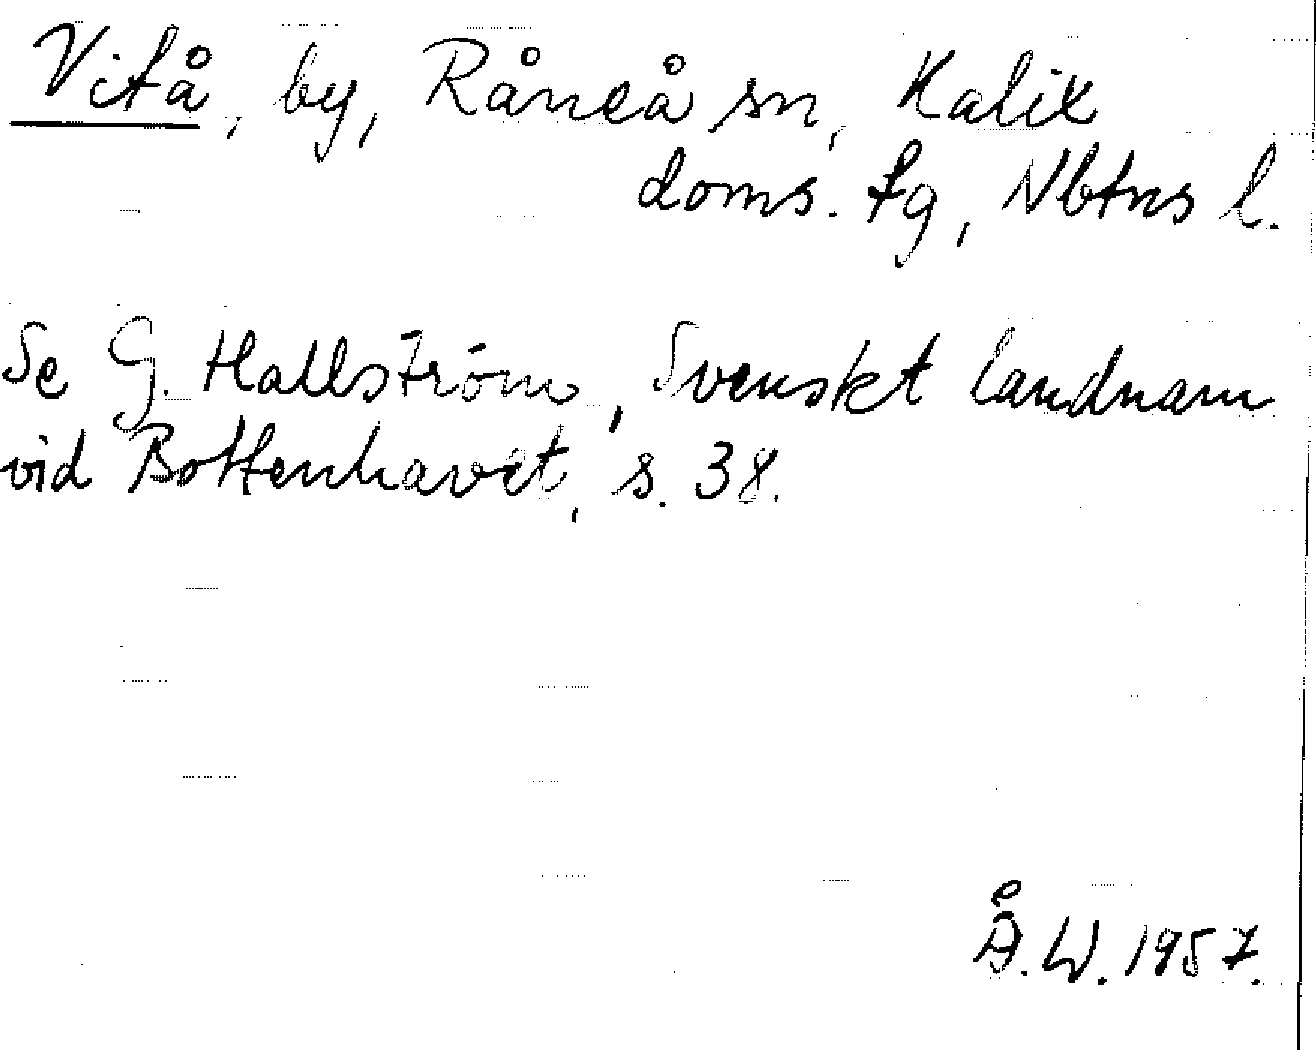 Vitå, by, Råneå sn, Kalix
doms. fg, Nbtns l.
Se G. Hallström, Svenskt landnam
vid Bottenhavet, s. 38.
Å.W. 1957.